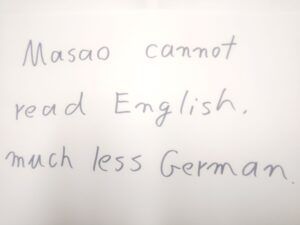 Masao cannot
read English,
much less German.